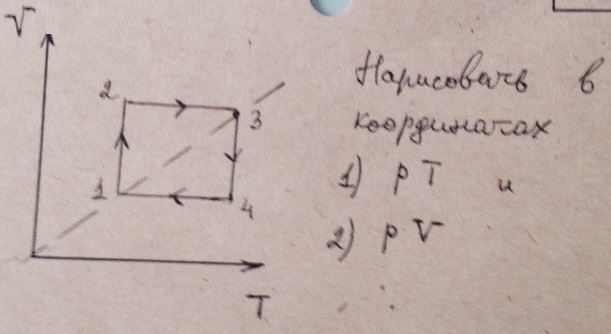 V
2
3
1
4
T
Нарисовать в
координатах
1) pT и
2) pV